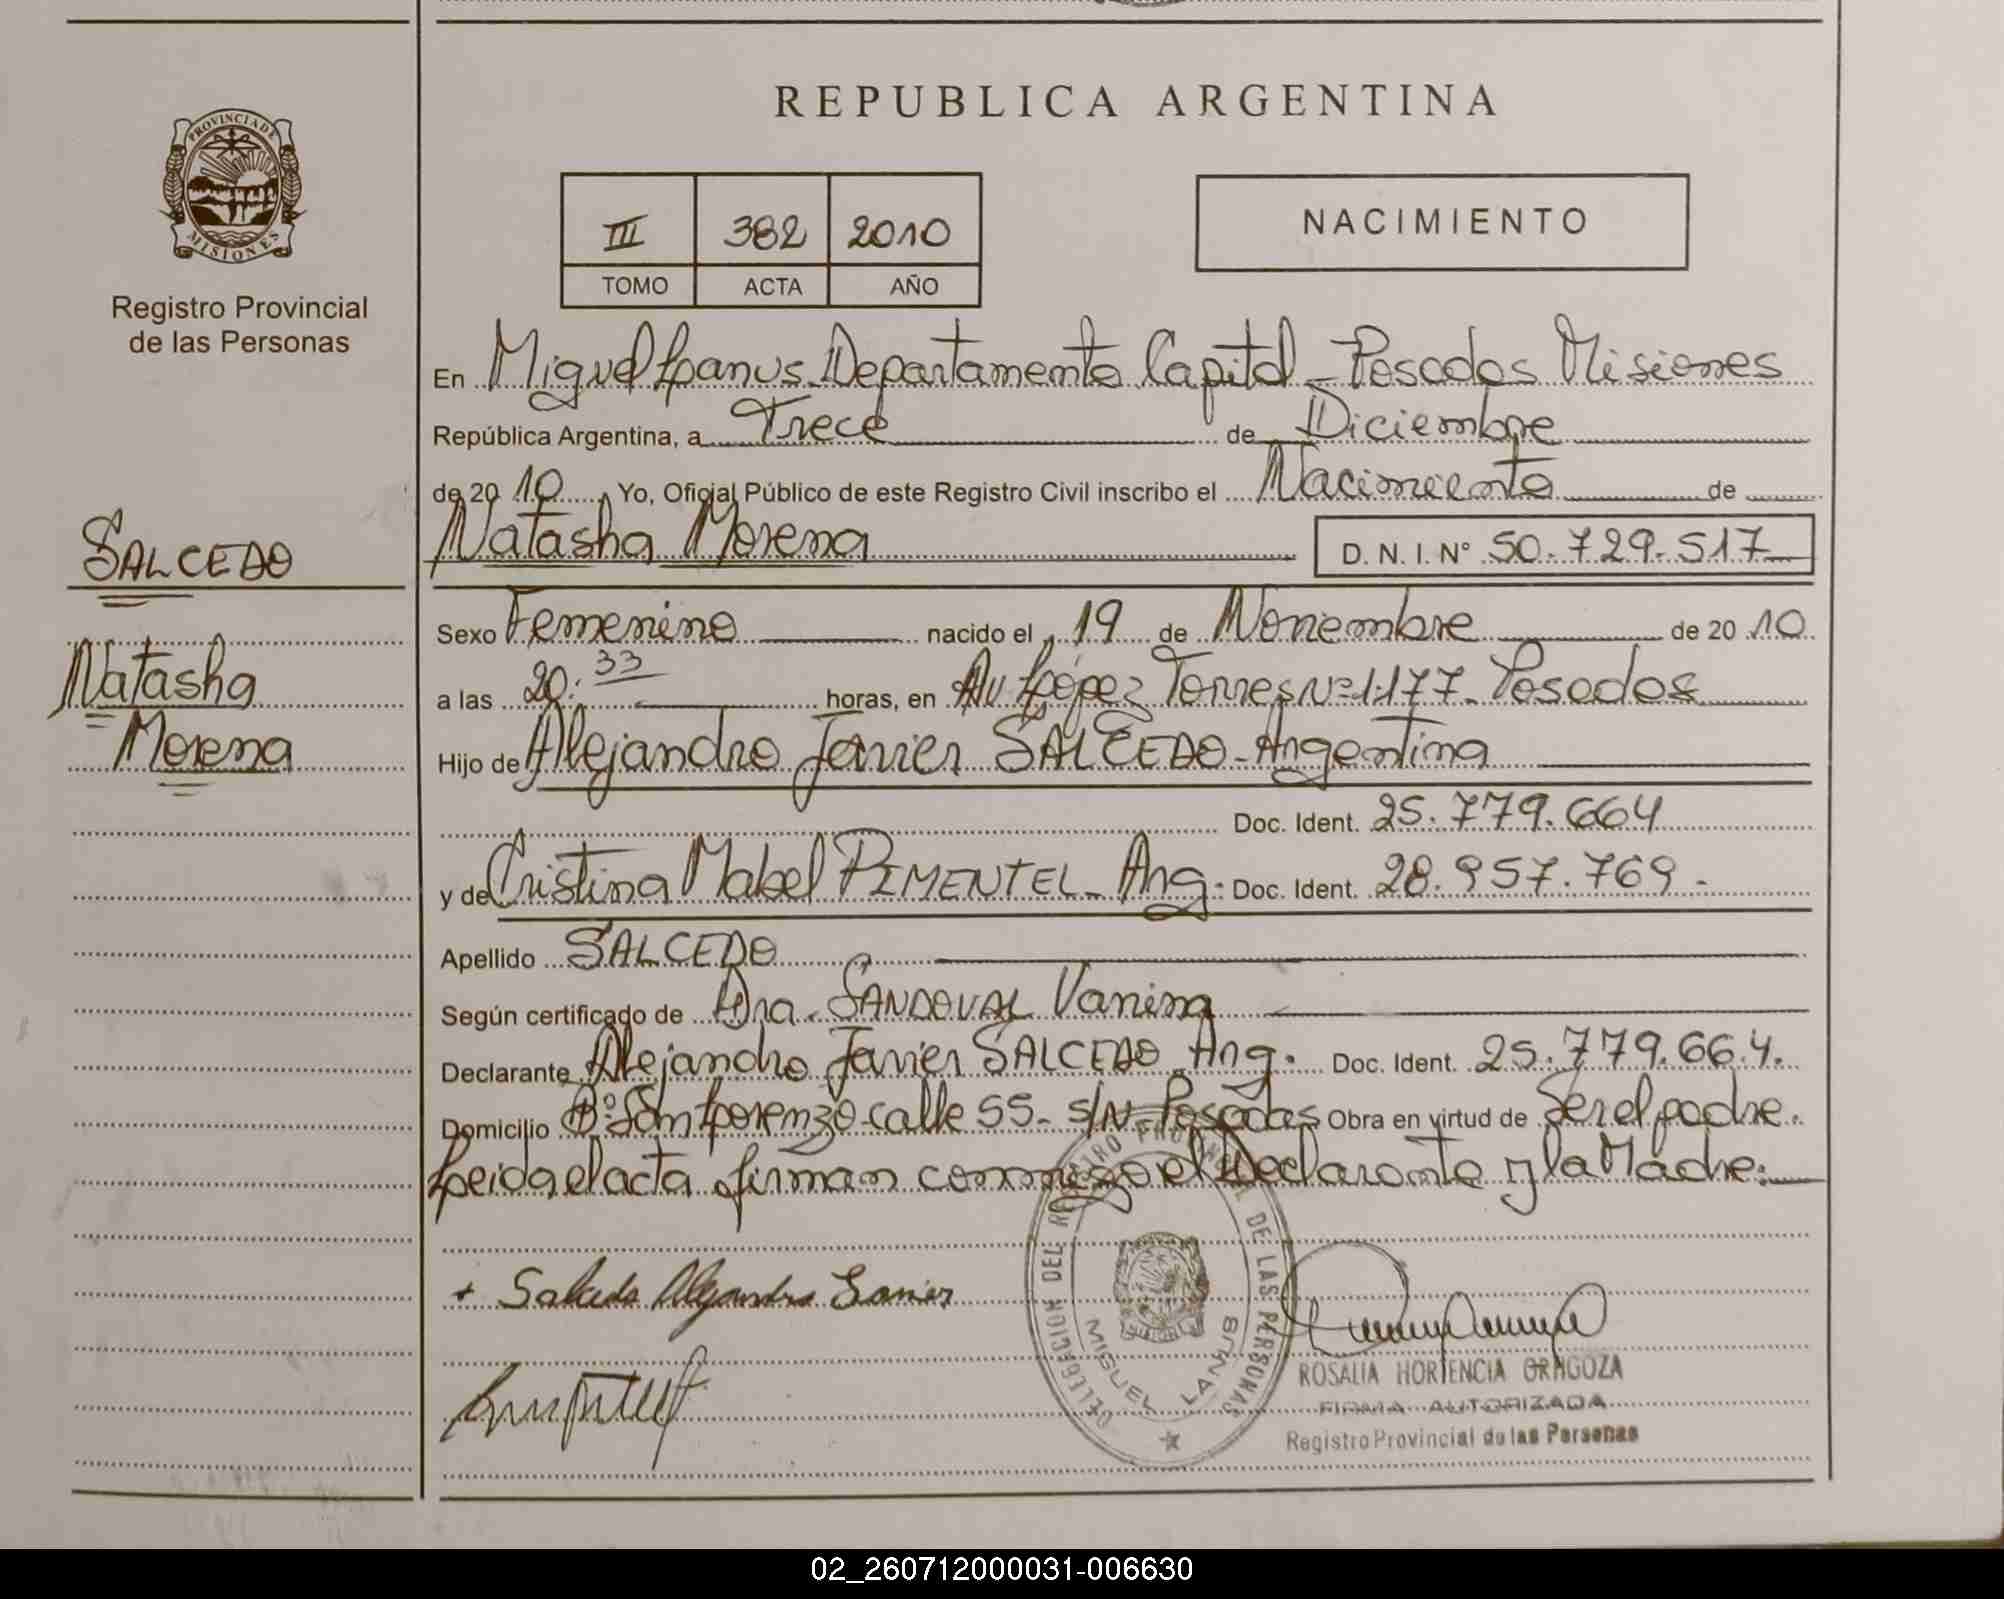 REPUBLICA ARGENTINA
PROVINCIA DE
MISIONES
Registro Provincial
de las Personas
III 382 2010
TOMO ACTA AÑO
NACIMIENTO
En Miguel Lanus. Departamento Capital - Posadas Misiones
República Argentina, a Trece de Diciembre
de 20 10 Yo, Oficial Público de este Registro Civil inscribo el Nacimiento de
SALCEDO
Natasha
Morena
Natasha Morena D. N. I. N° 50.729.517
Sexo Femenino nacido el 19 de Noviembre de 20 10
a las 20:33 horas, en Av López Torres Nº 1177 - Posadas
Hijo de Alejandro Javier SALCEDO - Argentina
Doc. Ident. 25.779.664
y de Cristina Mabel PIMENTEL - Arg. Doc. Ident. 28.957.769.
Apellido SALCEDO
Según certificado de Dra. SANDOVAL Vanina
Declarante Alejandro Javier SALCEDO Arg. Doc. Ident. 25.779.664.
Domicilio Bº San Lorenzo - calle 55 - S/N - Posadas Obra en virtud de Ser el padre.
Leida el acta firman conmigo el Declarante y la Madre.
+ Salcedo Alejandro Javier
DELEGACION DEL REGISTRO PROVINCIAL DE LAS PERSONAS
MIGUEL LANUS
ROSALIA HORTENCIA
FIRMA AUTORIZADA
Registro Provincial de las Personas
02_260712000031-006630